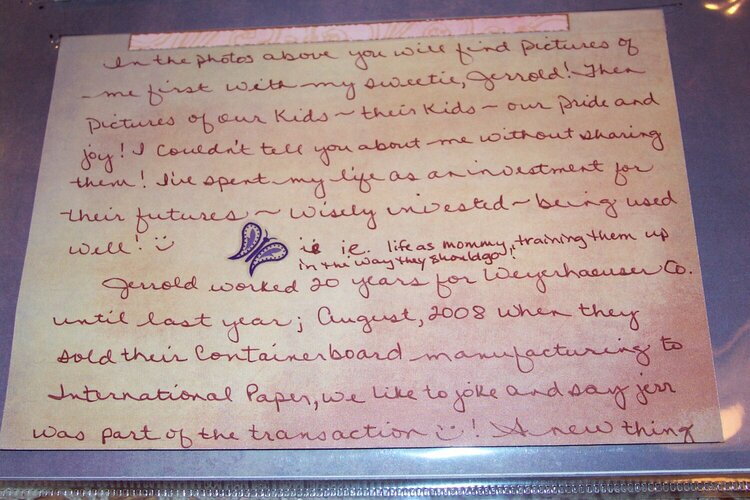 In the photos above you will find pictures of
me first with my sweetie, Jerrold! Then
pictures of our kids ~ their kids ~ our pride and
joy! I couldn't tell you about me without sharing
them! I've spent my life as an investment for
their futures ~ wisely invested ~ being used
well! :)
ie ie. life as mommy, training them up
in the way they should go!
Jerrold worked 20 years for Weyerhaeuser Co.
until last year; August, 2008 when they
sold their Containerboard manufacturing to
International Paper, we like to joke and say jerr
was part of the transaction :)! A new thing